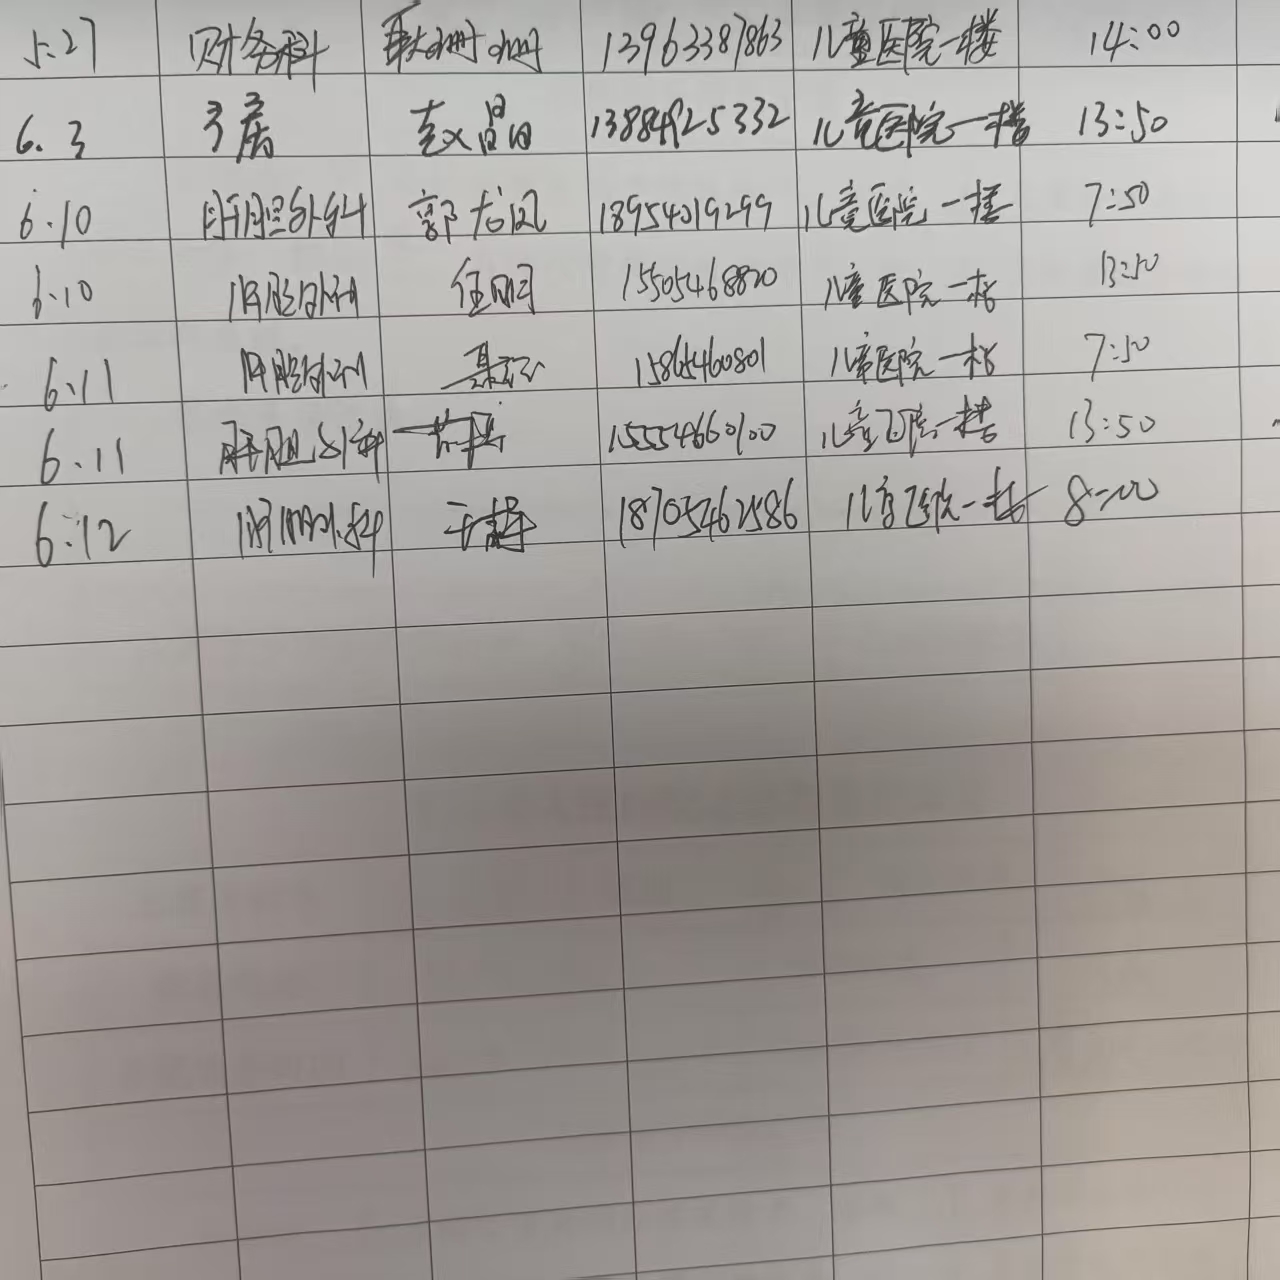 5.27 财务科 耿姗姗 13963387863 儿童医院一楼 14:00
6.3 赵晶 13884925332 儿童医院一楼 13:50
6.10 肝胆外科 郭 18954019299 儿童医院一楼 7:50
6.10 肝胆外科 任 15505468820 儿童医院一楼 13:50
6.11 肝胆外科 15865460801 儿童医院一楼 7:50
6.11 肝胆外科 15554660100 儿童医院一楼 13:50
6.12 肝胆外科 于 18705462586 儿童医院一楼 8:00